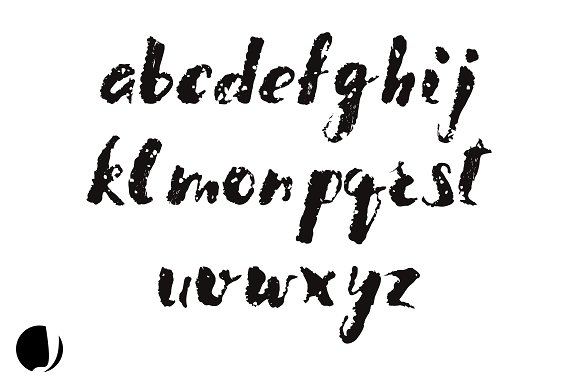 abcdefghij
klmonpqrst
uvwxyz